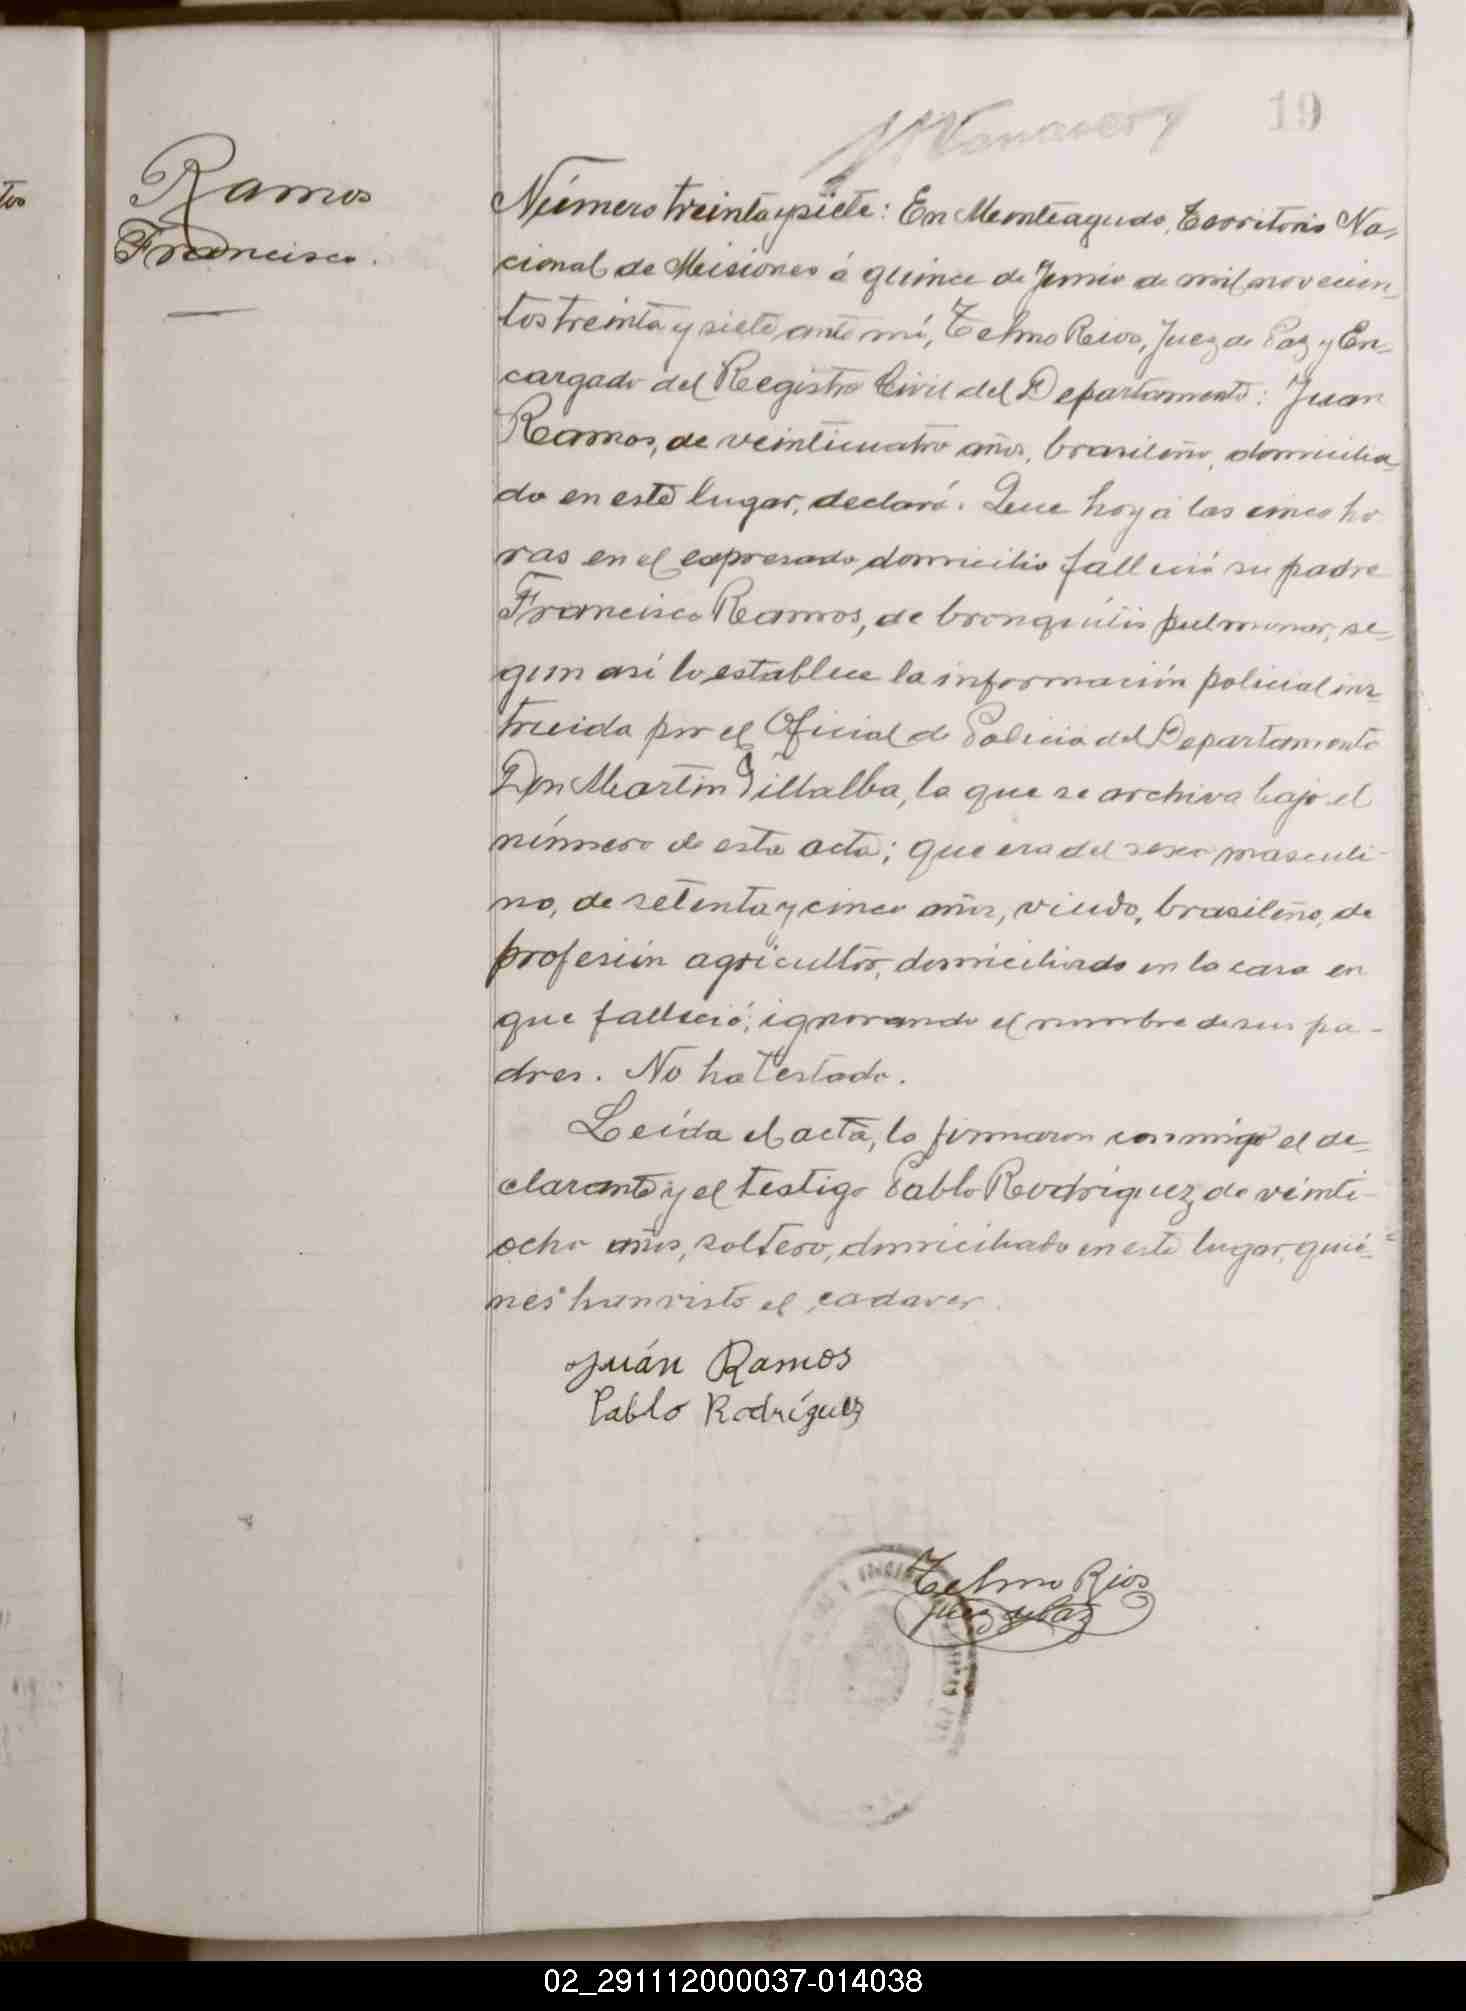 19
Ramos
Francisco.
Número treinta y siete: En Monteagudo, Territorio Na-
cional de Misiones á quince de Junio de mil novecien-
tos treinta y siete, ante mí, Telmo Rios, Juez de Paz y En-
cargado del Registro Civil del Departamento: Juan
Ramos, de veinticuatro años, brasileño, domicilia-
do en este lugar, declaró: Que hoy á las cinco ho
ras en el expresado domicilio falleció su padre
Francisco Ramos, de bronquitis pulmonar, se-
gun así lo establece la información policial ins-
truida por el Oficial de Policia del Departamento
Don Martin Villalba, la que se archiva bajo el
número de esta acta; que era del sexo masculi-
no, de setenta y cinco años, viudo, brasileño, de
profesión agricultor, domiciliado en la casa en
que falleció; ignorando el nombre de sus pa-
dres. No ha testado.
Leída el acta, la firmaron conmigo el de-
clarante y el testigo Pablo Rodríguez, de veinti-
ocho años, soltero, domiciliado en este lugar, quié-
nes han visto el cadaver.
Juán Ramos
Pablo Rodríguez
Telmo Rios
Juez de Paz
02_291112000037-014038